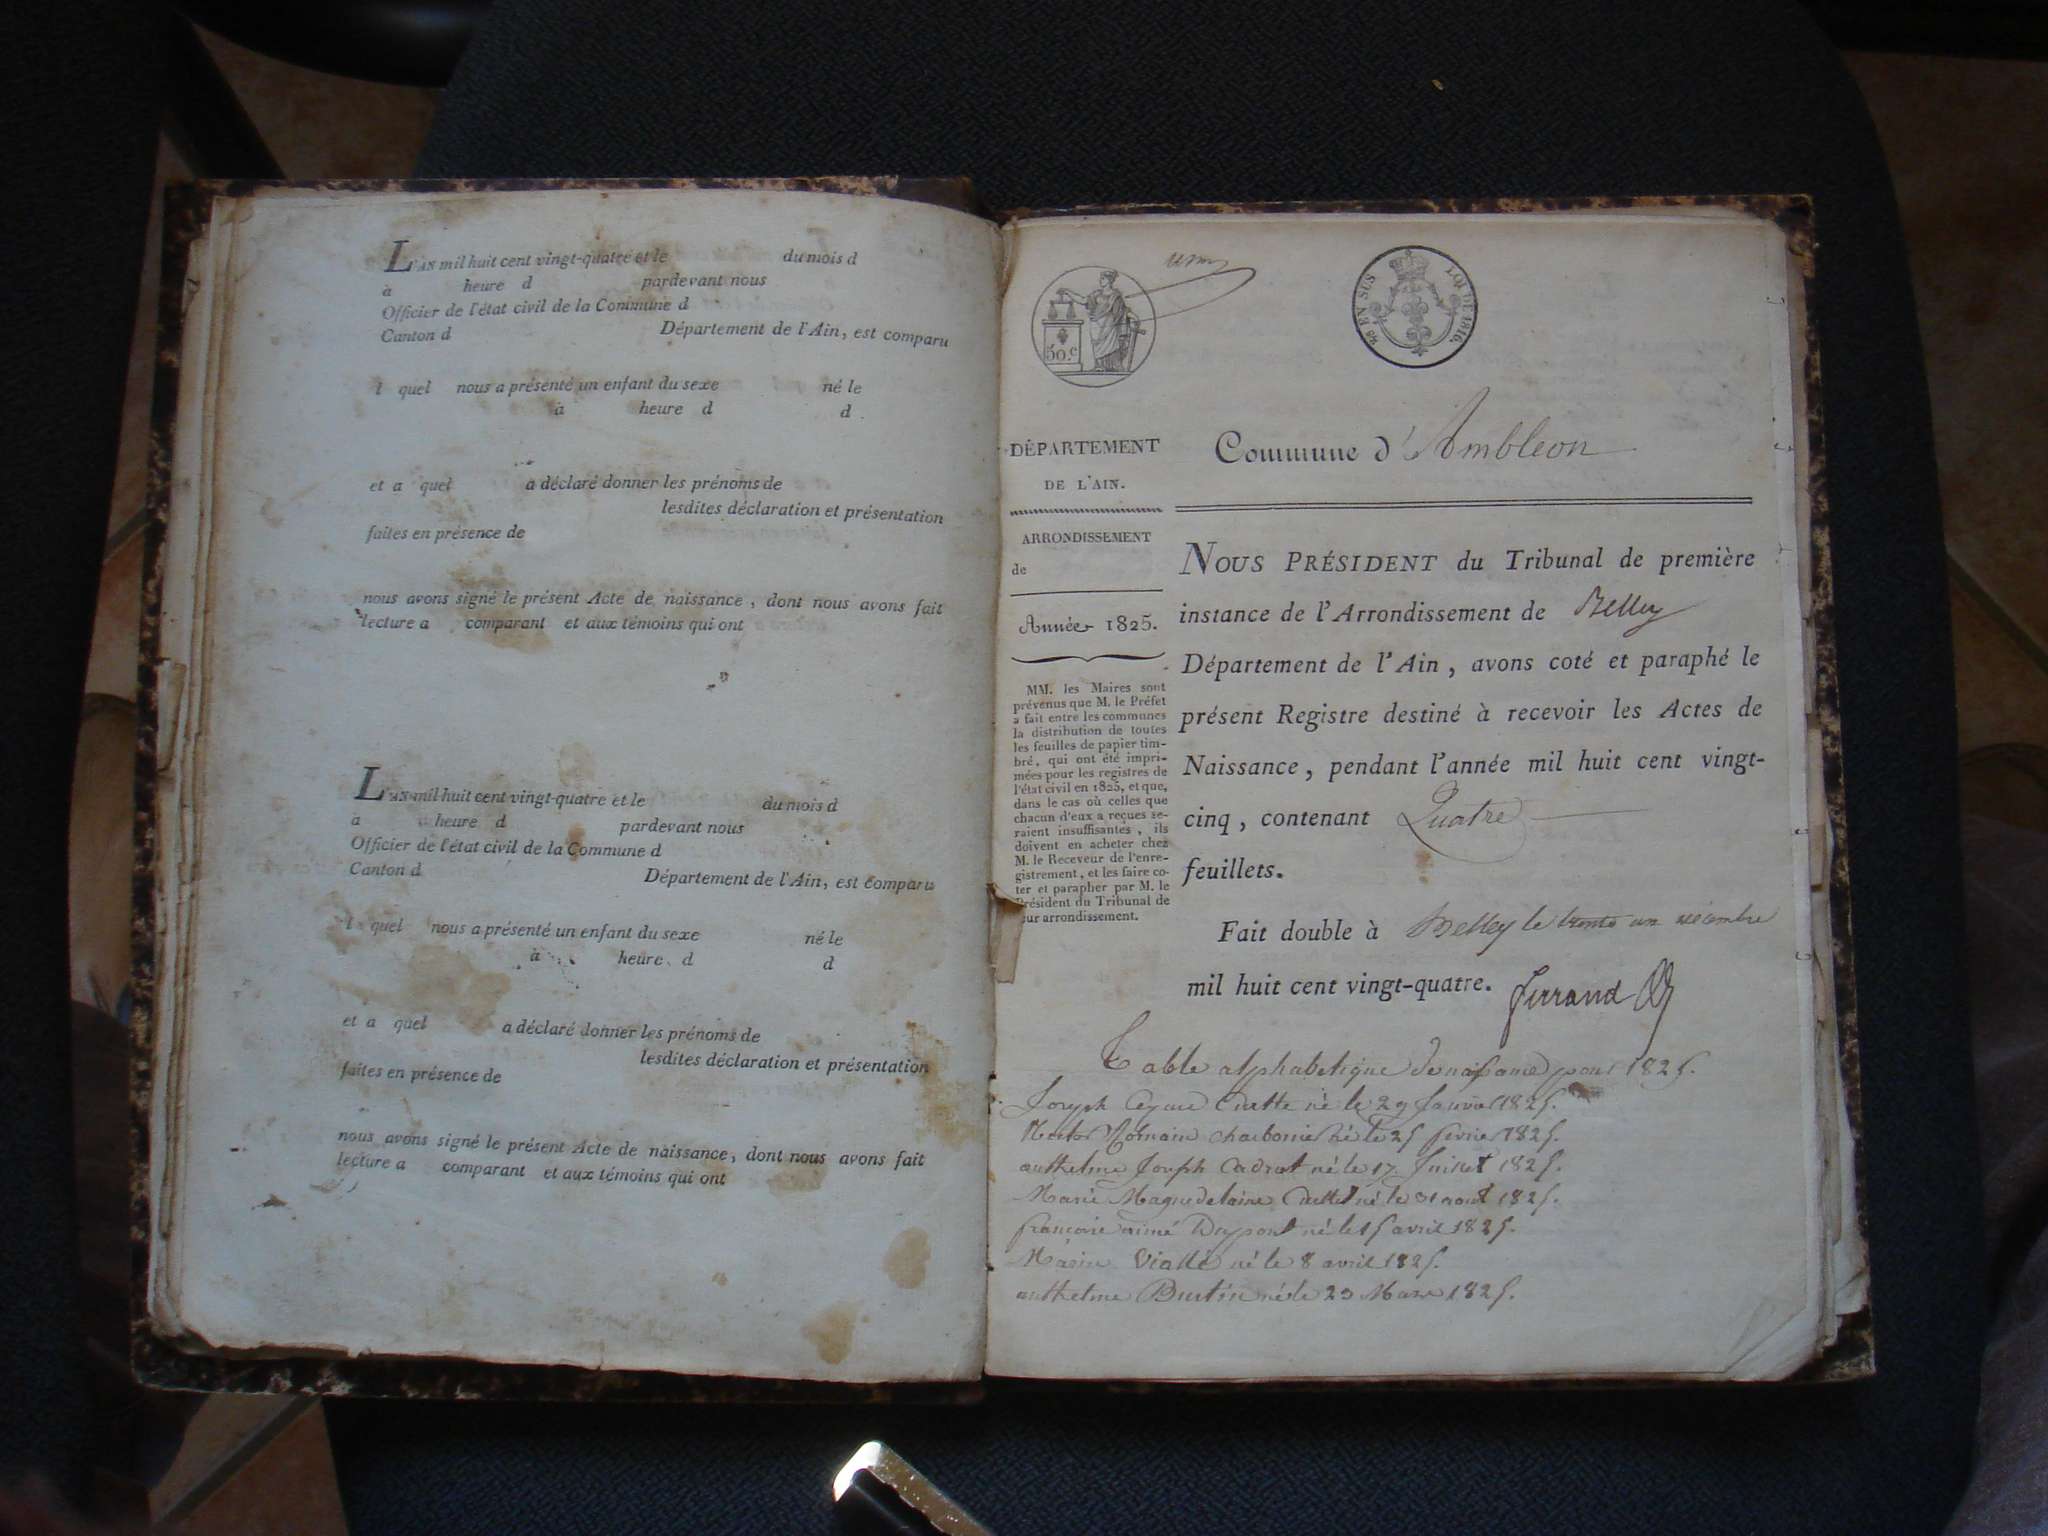 L'AN mil huit cent vingt-quatre et le du mois d
à heure d pardevant nous
Officier de l'état civil de la Commune d
Canton d Département de l'Ain, est comparu
l quel nous a présenté un enfant du sexe né le
à heure d d
et a quel a déclaré donner les prénoms de
lesdites déclaration et présentation
faites en présence de
nous avons signé le présent Acte de naissance, dont nous avons fait
lecture a comparant et aux témoins qui ont
L'AN mil huit cent vingt-quatre et le du mois d
à heure d pardevant nous
Officier de l'état civil de la Commune d
Canton d Département de l'Ain, est comparu
l quel nous a présenté un enfant du sexe né le
à heure d d
et a quel a déclaré donner les prénoms de
lesdites déclaration et présentation
faites en présence de
nous avons signé le présent Acte de naissance, dont nous avons fait
lecture a comparant et aux témoins qui ont
50.c
EN SUS
LOI DE 1816.
DÉPARTEMENT
DE L'AIN.
ARRONDISSEMENT
de
Année 1825.
MM. les Maires sont
prévenus que M. le Préfet
a fait entre les communes
la distribution de toutes
les feuilles de papier tim-
bré, qui ont été impri-
mées pour les registres de
l'état civil en 1825, et que,
dans le cas où celles que
chacun d'eux a reçues se-
raient insuffisantes, ils
doivent en acheter chez
M. le Receveur de l'enre-
gistrement, et les faire co-
ter et parapher par M. le
Président du Tribunal de
leur arrondissement.
Commune d'Ambleon
NOUS PRÉSIDENT du Tribunal de première
instance de l'Arrondissement de Belley
Département de l'Ain, avons coté et paraphé le
présent Registre destiné à recevoir les Actes de
Naissance, pendant l'année mil huit cent vingt-
cinq, contenant Quatre
feuillets.
Fait double à Belley le trente un décembre
mil huit cent vingt-quatre. Ferrand
Table alphabetique de naissance pour 1825.
Joseph né le 29 Janvier 1825.
Romain charbonnier né le 25 fevrier 1825.
anthelme Joseph Cadrat né le 17 Juillet 1825.
Marie Magdelaine né le 31 aout 1825.
francoise aimé Dupont né le 15 avril 1825.
Vialle né le 8 avril 1825.
anthelme Burtin né le 23 Mars 1825.